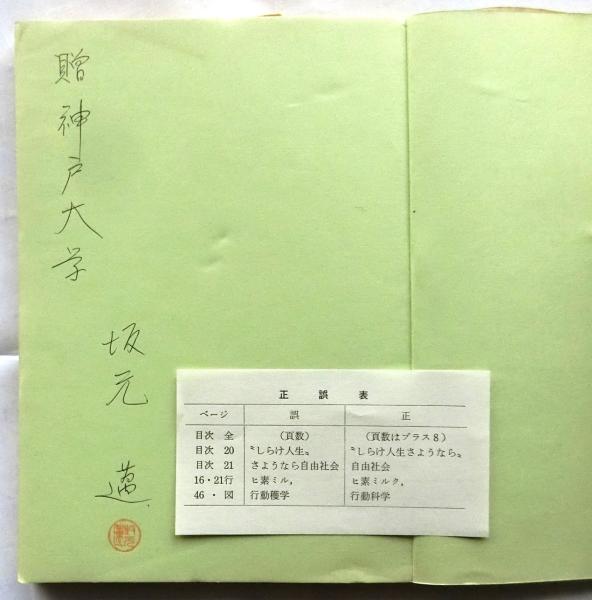 贈神戸大学
坂元
邁
正誤表
ページ 誤 正
目次 全 (頁数) (頁数はプラス8)
目次 20 〝しらけ人生〟 〝しらけ人生さようなら〟
目次 21 さようなら自由社会 自由社会
16・21行 ヒ素ミル, ヒ素ミルク,
46・図 行動穫学 行動科学